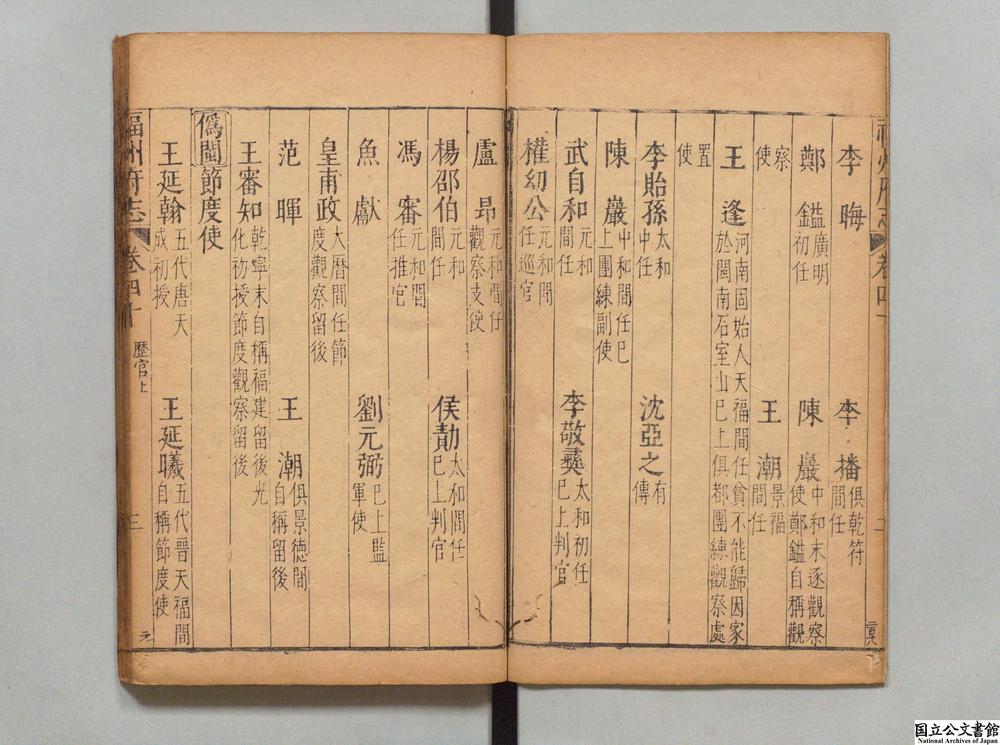 李晦　李播俱乾符間任
鄭鑑廣明初任　陳巖中和末逐觀察使鄭鑑自稱觀
察使　王潮景福間任
王逢河南固始人天福間任貧不能歸因家於閩南石室山已上俱都團練觀察處
置使
李貽孫太和中任　沈亞之有傳
陳巖中和間任已上團練副使
武自和元和間任　李敬彛太和初任已上判官
權幼公元和間任巡官
盧昂元和間任觀察支使
楊邵伯元和間任　侯勣太和間任已上判官
馮審元和間任推官
魚獻　劉元弼已上監軍使
皇甫政大曆間任節度觀察留後
范暉　王潮俱景德間自稱留後
王審知乾寧末自稱福建留後光化初授節度觀察留後
僞閩節度使
王延翰五代唐天成初授　王延曦五代晉天福間自稱節度使
福州府志　卷四十　歷官上　三
国立公文書館
National Archives of Japan